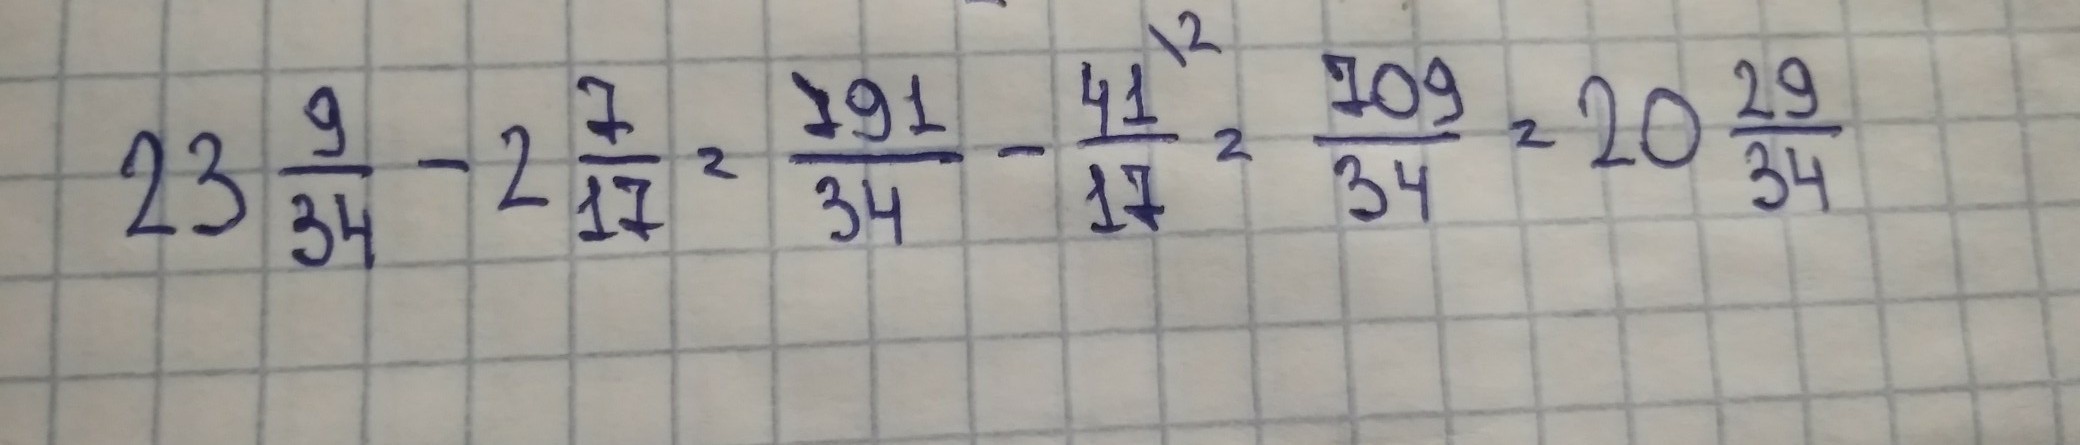 23 9/34 - 2 7/17 = 791/34 - 41\2/17 = 709/34 = 20 29/34